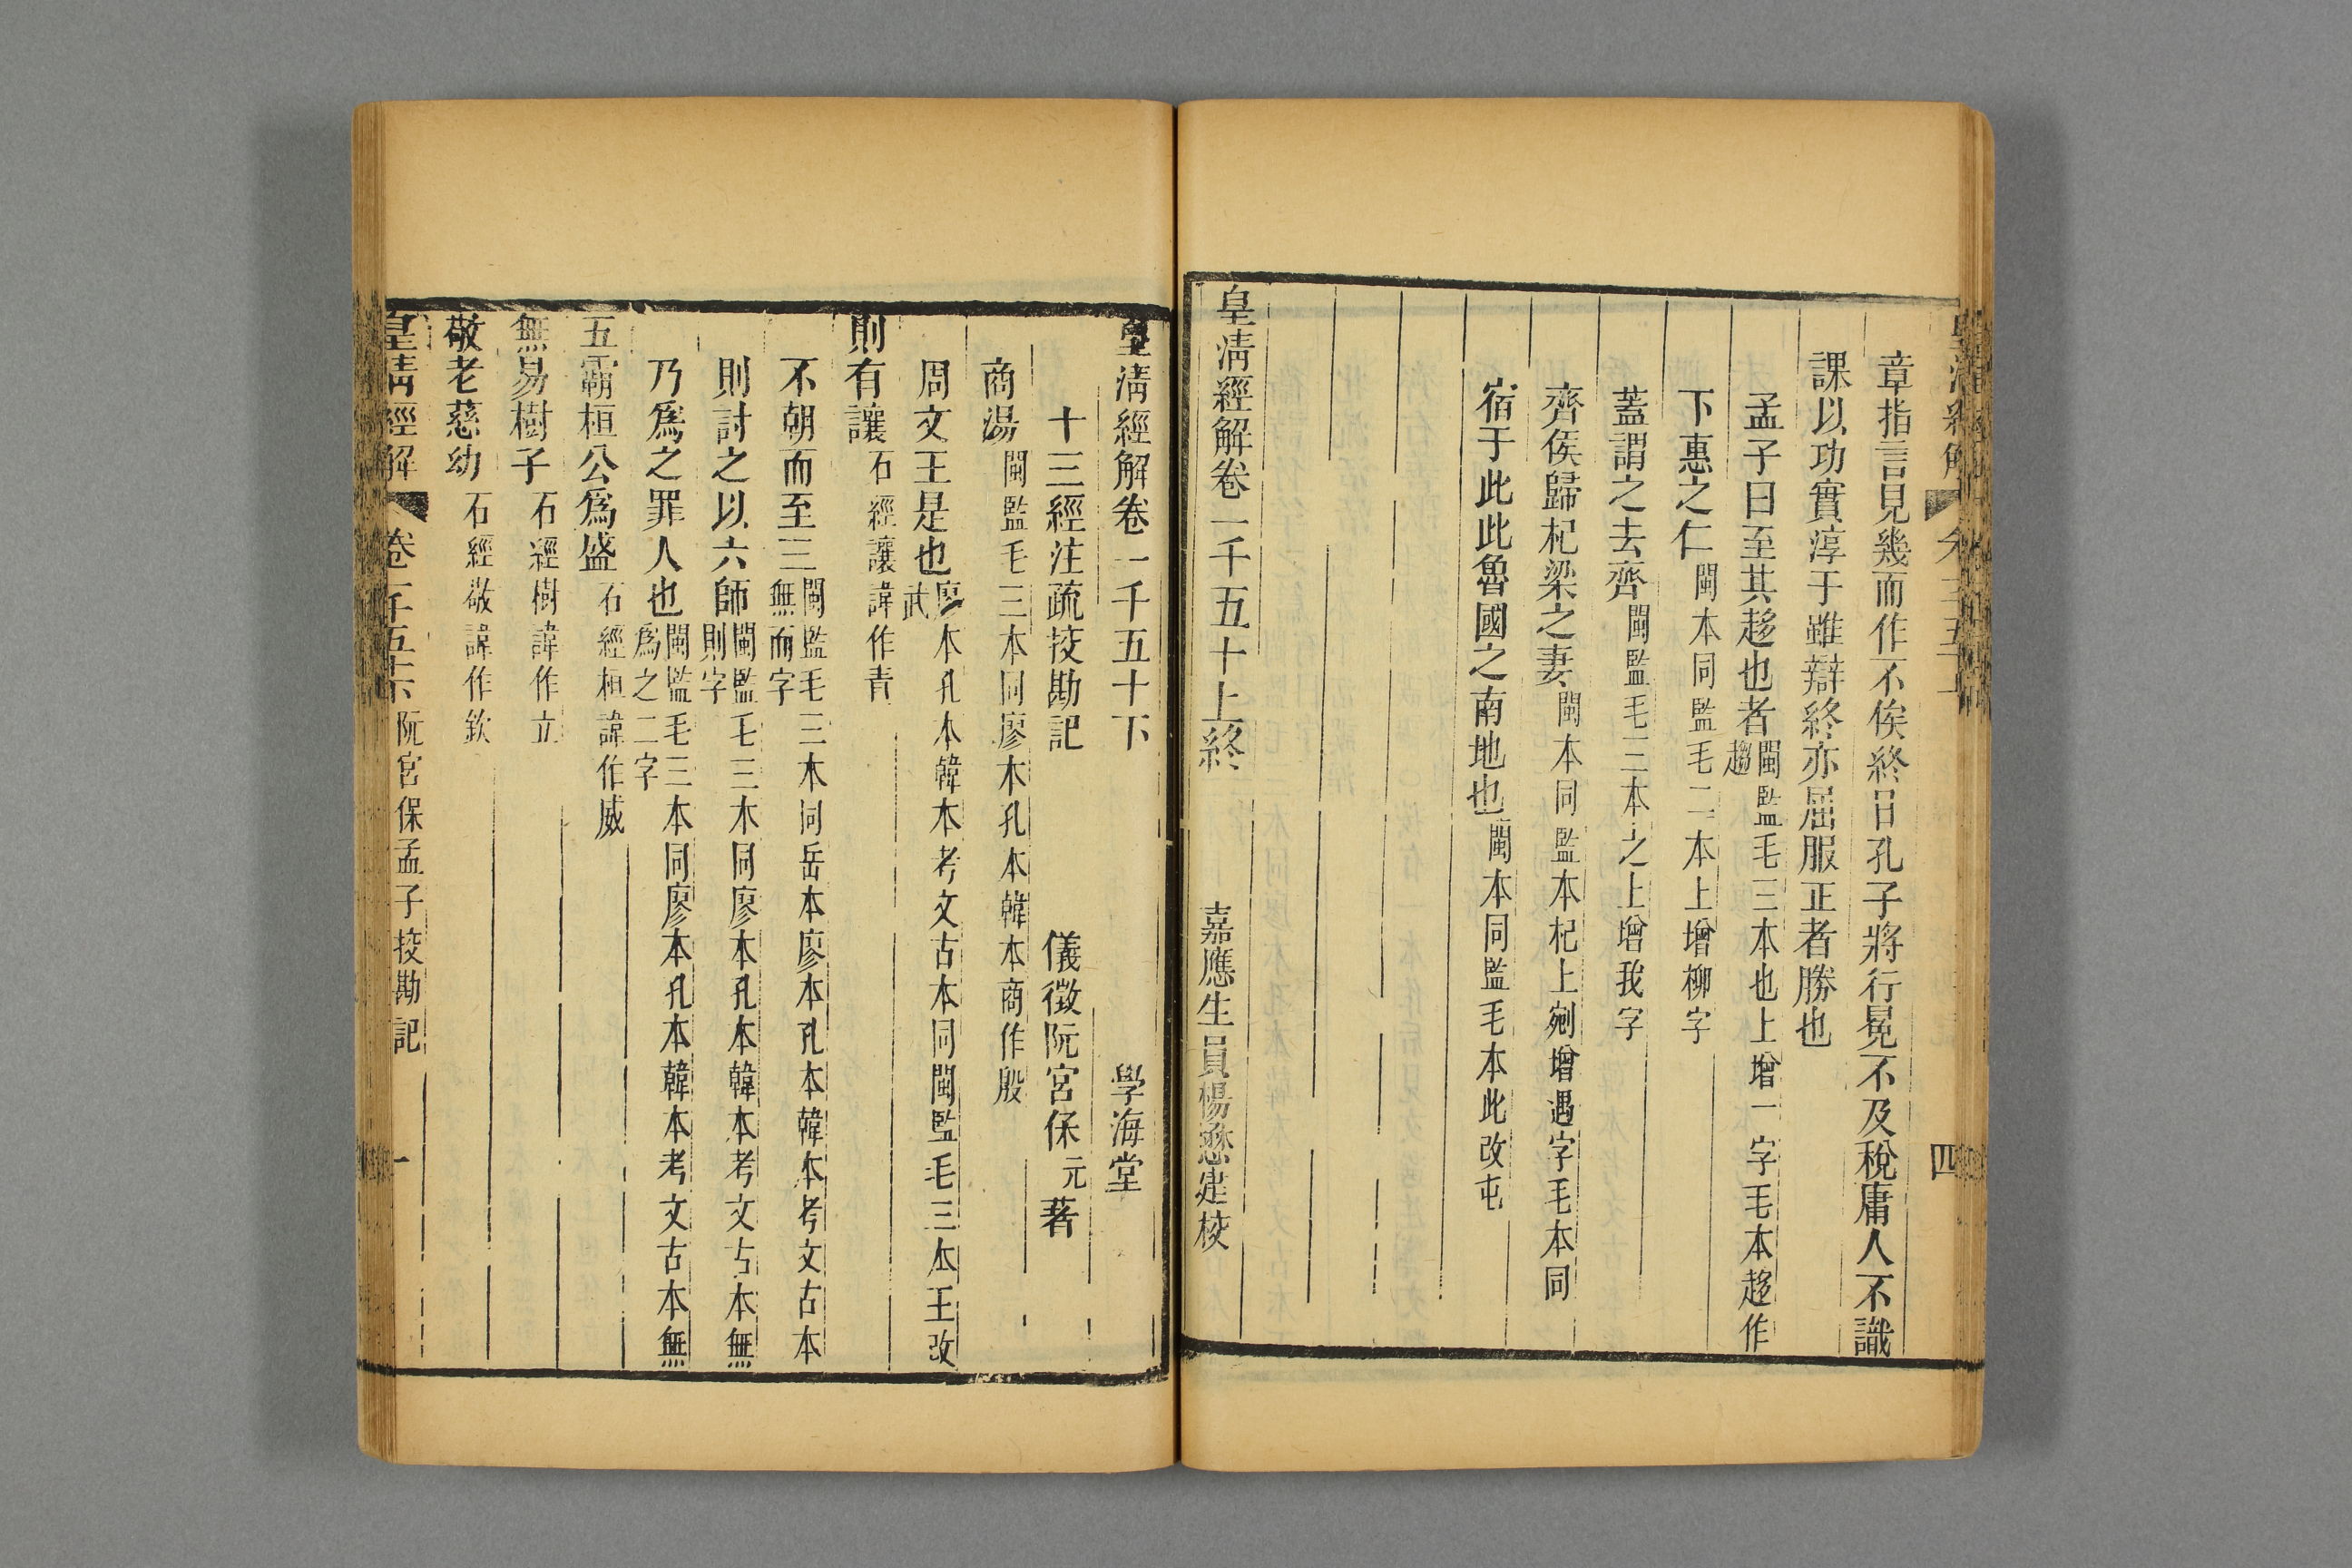 章指言見幾而作不俟終日孔子將行冕不及稅庸人不識
課以功實淳于雖辯終亦屈服正者勝也
孟子曰至其趍也者閩監毛三本也上增一字毛本趍作趨
下惠之仁閩本同監毛二本上增柳字
蓋謂之去齊閩監毛三本之上增我字
齊侯歸杞梁之妻閩本同監本杞上剜增遇字毛本同
宿于此此魯國之南地也閩本同監毛本此改屯
皇清經解卷一千五十上終
嘉應生員楊懋建校
皇清經解卷一千五十下
學海堂
十三經注疏挍勘記
儀徵阮宮保元著
商湯閩監毛三本同廖本孔本韓本商作殷
周文王是也廖本孔本韓本考文古本同閩監毛三本王改武
則有讓石經讓諱作責
不朝而至三閩監毛三本同岳本廖本孔本韓本考文古本無而字
則討之以六師閩監毛三本同廖本孔本韓本考文古本無則字
乃爲之罪人也閩監毛三本同廖本孔本韓本考文古本無爲之二字
五霸桓公爲盛石經桓諱作威
無易樹子石經樹諱作立
敬老慈幼石經敬諱作欽
皇清經解 卷一千五十下 阮宮保孟子挍勘記 一
四